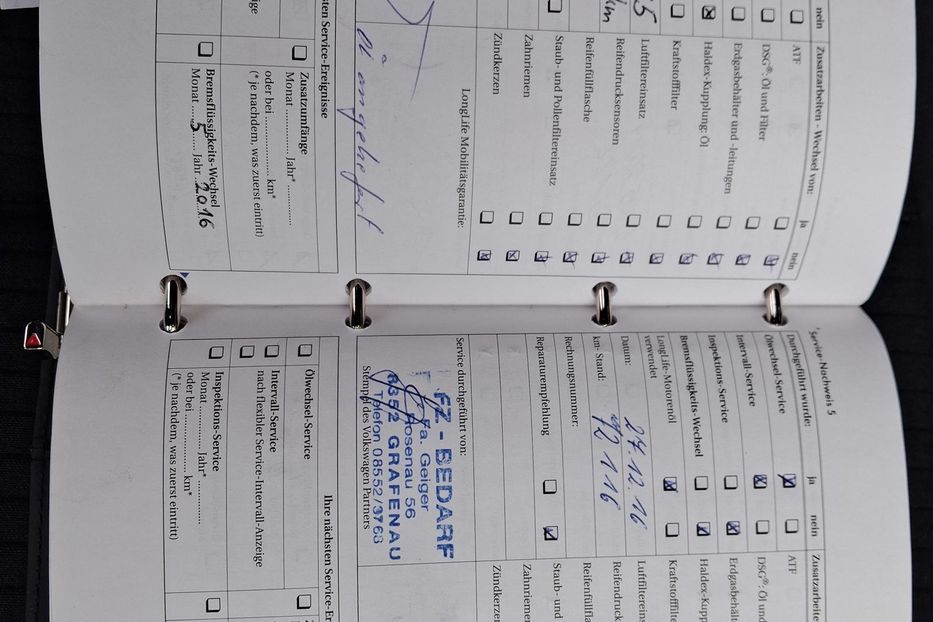 nein
Zusatzarbeiten - Wechsel von: ja nein
ATF
DSG®: Öl und Filter
Erdgasbehälter und -leitungen
Haldex-Kupplung: Öl
Kraftstofffilter
Luftfiltereinsatz
Reifendrucksensoren
Reifenfüllflasche
Staub- und Pollenfiltereinsatz
Zahnriemen
Zündkerzen
km
LongLife Mobilitätsgarantie:
sten Service-Ereignisse
Zusatzumfänge
Monat ........ Jahr* ............
oder bei ................ km*
(* je nachdem, was zuerst eintritt)
Bremsflüssigkeits-Wechsel
Monat ...5... Jahr ..2016
Service-Nachweis 5
Durchgeführt wurde: ja nein
Ölwechsel-Service
Intervall-Service
Inspektions-Service
Bremsflüssigkeits-Wechsel
LongLife-Motorenöl
verwendet
Datum: 27.12.16
km- Stand: 72 116
Rechnungsnummer:
Reparaturempfehlung
Service durchgeführt von:
FZ - BEDARF
Fa. Geiger
Rosenau 56
8352 GRAFENAU
Telefon 08552/3768
Stempel des Volkswagen Partners
Ihre nächsten Service-Er
Ölwechsel-Service
Intervall-Service
nach flexibler Service-Intervall-Anzeige
Inspektions-Service
Monat ........ Jahr* ............
oder bei ................ km*
(* je nachdem, was zuerst eintritt)
Zusatzarbeite
ATF
DSG®: Öl und
Erdgasbehält
Haldex-Kupp
Kraftstofffilte
Luftfiltereins
Reifendruck
Reifenfüllfla
Staub- und
Zahnriemen
Zündkerzen